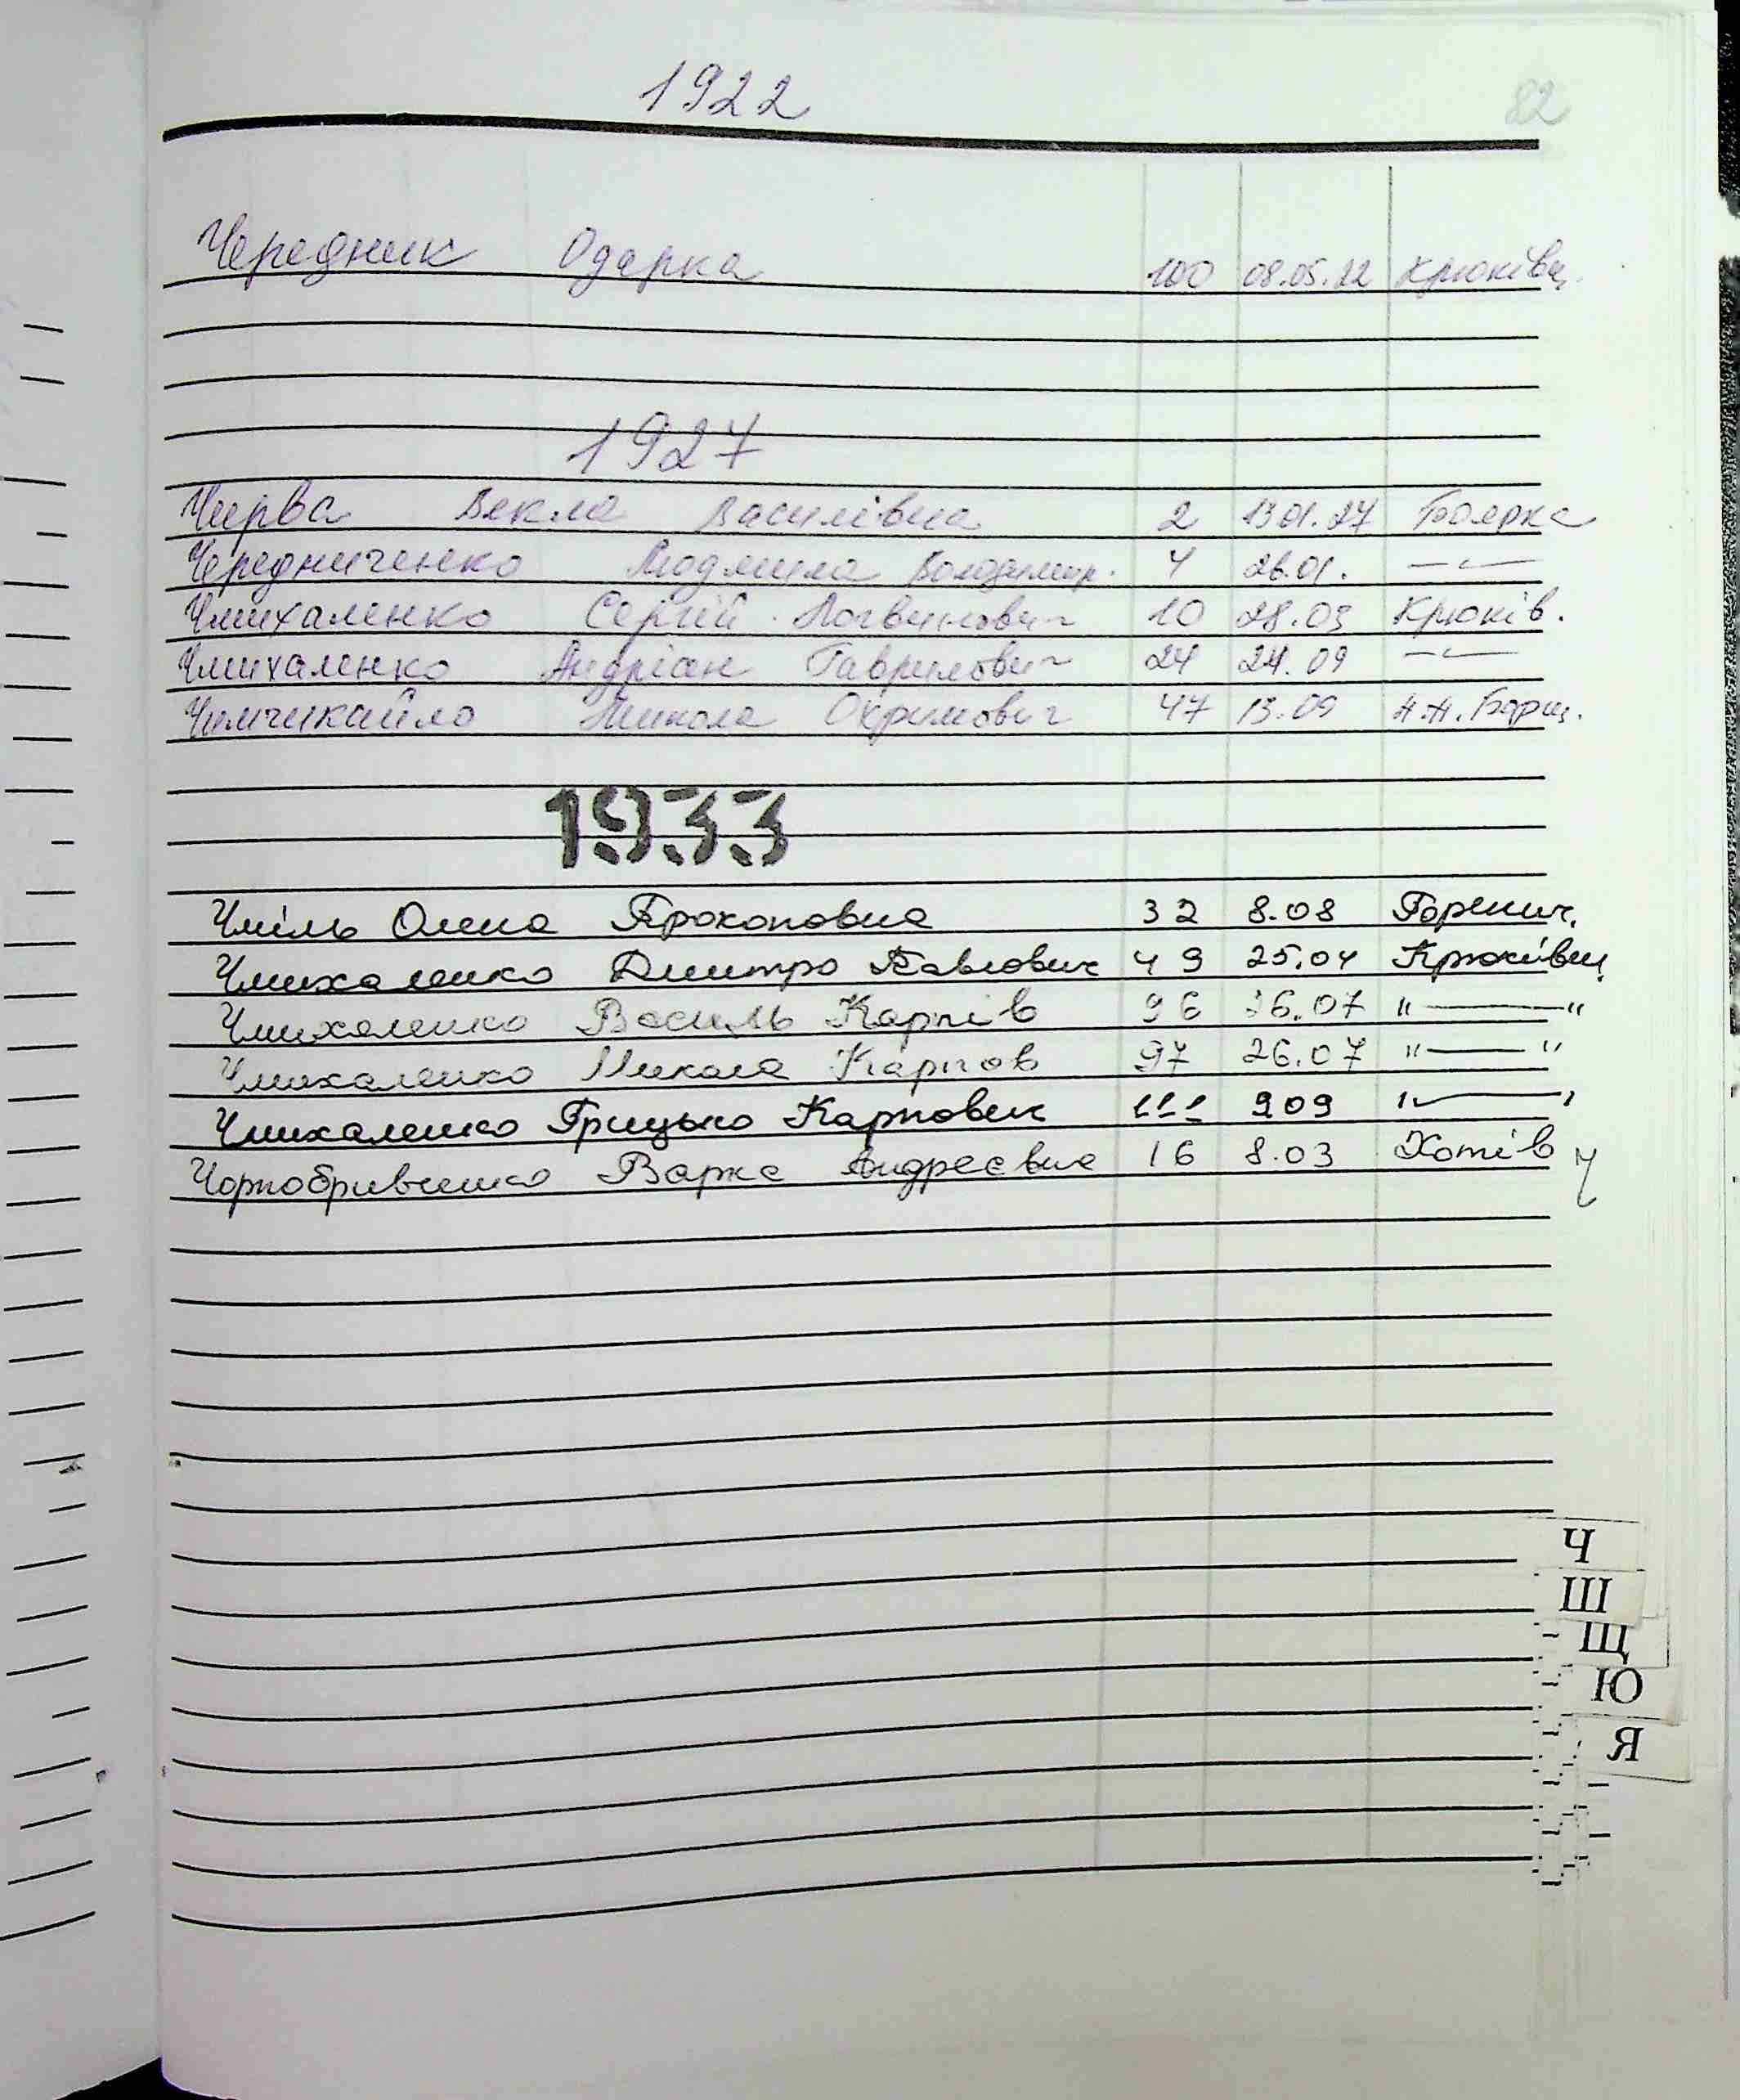 1922
82
Чередник Одарка 100 08.05.22 Крюківщ.
1927
Чирва Векла Василівна 2 13.01.27 Боярка
Чередниченко Людмила Володимир. 4 26.01. —〃—
Чмихаленко Сергій Логвинович 10 28.03 Крюків.
Чмихаленко Андріан Гаврилович 24 24.09 —〃—
Чимчикайло Микола Охримович 47 13.09 Борщ.
1933
Чміль Олена Прокоповна 32 8.08 Горенич.
Чмихаленко Дмитро Павлович 49 25.04 Крюківщ
Чмихаленко Василь Карпів 96 26.07 "——"
Чмихаленко Микола Карпов 97 26.07 "——"
Чмихаленко Грицько Карпович 111 909 "——"
Чорнобривченко Варка Андреєвна 16 8.03 Хотів
Ч
Ш
Щ
Ю
Я